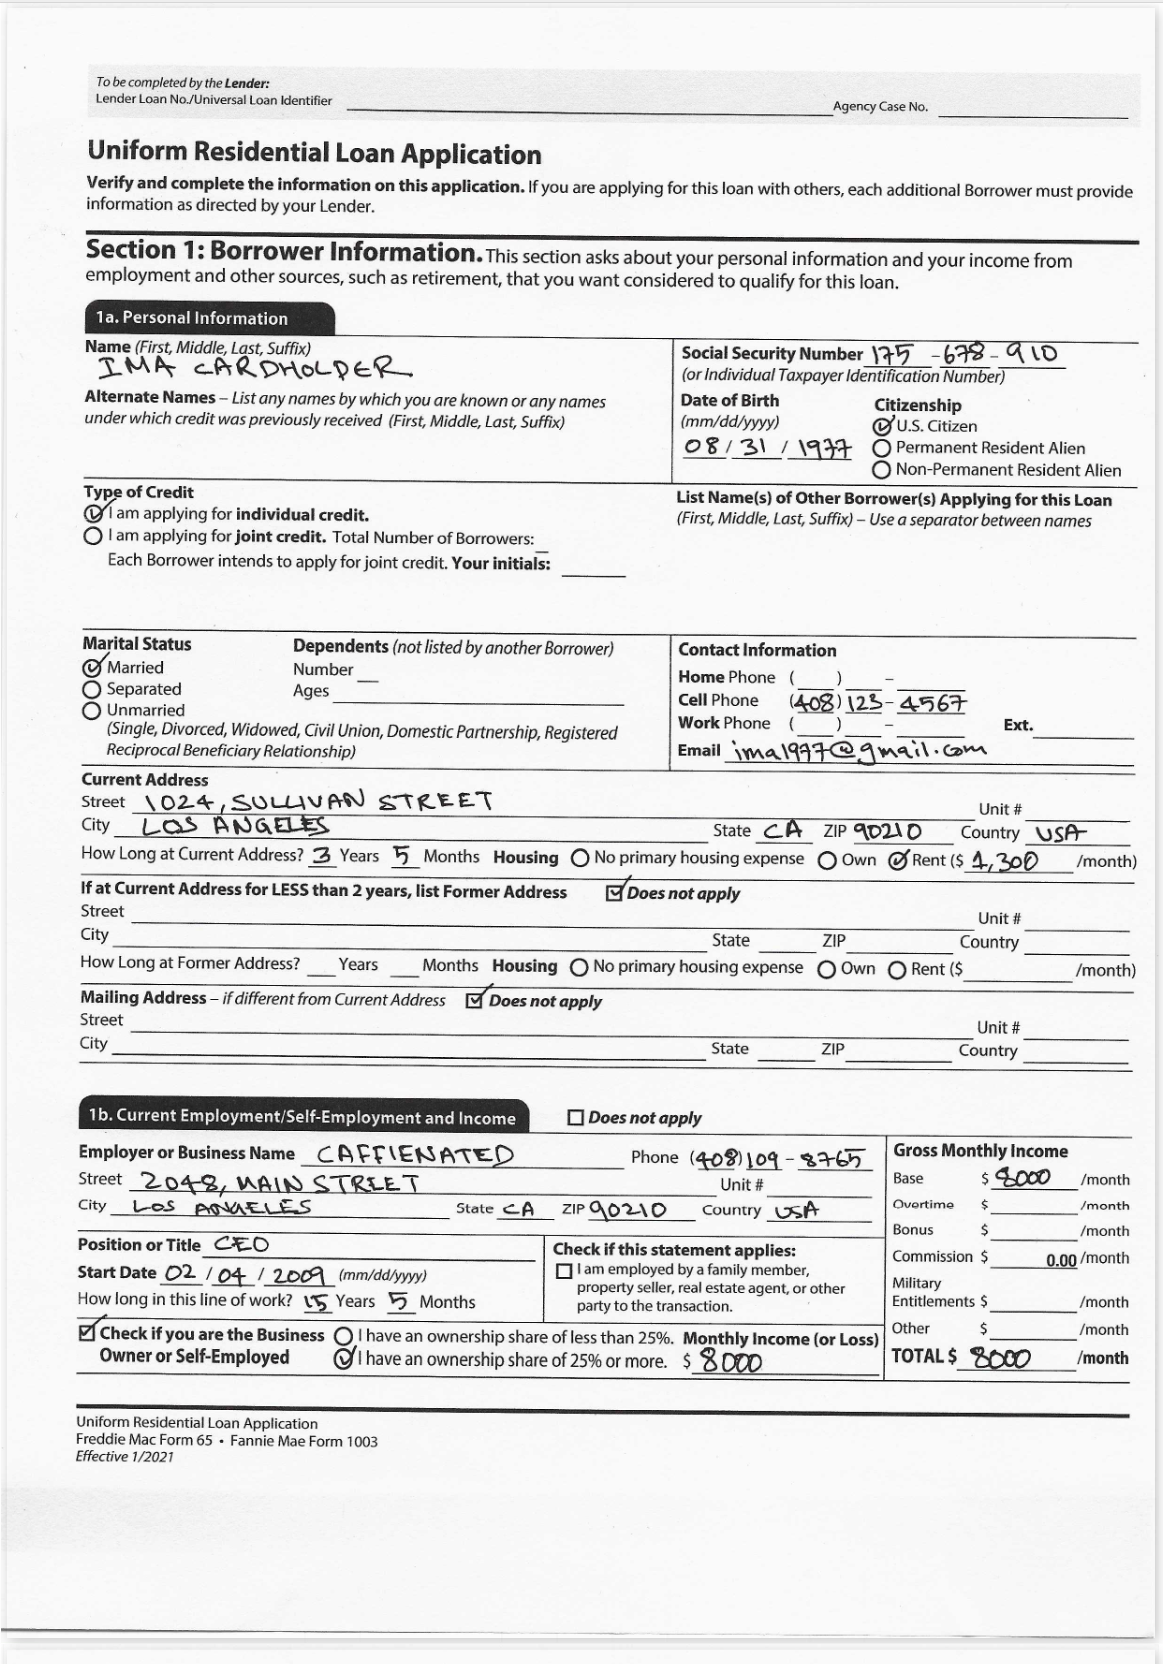 To be completed by the Lender:
Lender Loan No./Universal Loan Identifier
Agency Case No.
Uniform Residential Loan Application
Verify and complete the information on this application. If you are applying for this loan with others, each additional Borrower must provide
information as directed by your Lender.
Section 1: Borrower Information. This section asks about your personal information and your income from
employment and other sources, such as retirement, that you want considered to qualify for this loan.
1a. Personal Information
Name (First, Middle, Last, Suffix)
IMA CARDHOLDER
Alternate Names – List any names by which you are known or any names
under which credit was previously received (First, Middle, Last, Suffix)
Social Security Number 175 - 678 - 910
(or Individual Taxpayer Identification Number)
Date of Birth
(mm/dd/yyyy)
08 / 31 / 1977
Citizenship
U.S. Citizen
Permanent Resident Alien
Non-Permanent Resident Alien
Type of Credit
I am applying for individual credit.
I am applying for joint credit. Total Number of Borrowers:
Each Borrower intends to apply for joint credit. Your initials:
List Name(s) of Other Borrower(s) Applying for this Loan
(First, Middle, Last, Suffix) – Use a separator between names
Marital Status
Married
Separated
Unmarried
(Single, Divorced, Widowed, Civil Union, Domestic Partnership, Registered
Reciprocal Beneficiary Relationship)
Dependents (not listed by another Borrower)
Number
Ages
Contact Information
Home Phone ( ) –
Cell Phone (408) 123 - 4567
Work Phone ( ) – Ext.
Email ima1977@gmail.com
Current Address
Street 1024, SULLIVAN STREET Unit #
City LOS ANGELES State CA ZIP 90210 Country USA
How Long at Current Address? 3 Years 5 Months Housing No primary housing expense Own Rent ($ 1,300 /month)
If at Current Address for LESS than 2 years, list Former Address Does not apply
Street Unit #
City State ZIP Country
How Long at Former Address? Years Months Housing No primary housing expense Own Rent ($ /month)
Mailing Address – if different from Current Address Does not apply
Street Unit #
City State ZIP Country
1b. Current Employment/Self-Employment and Income Does not apply
Employer or Business Name CAFFIENATED Phone (408) 109 - 8765
Street 2048, MAIN STREET Unit #
City LOS ANGELES State CA ZIP 90210 Country USA
Position or Title CEO
Start Date 02 / 04 / 2009 (mm/dd/yyyy)
How long in this line of work? 15 Years 5 Months
Check if this statement applies:
I am employed by a family member,
property seller, real estate agent, or other
party to the transaction.
Check if you are the Business
Owner or Self-Employed
I have an ownership share of less than 25%. Monthly Income (or Loss)
I have an ownership share of 25% or more. $ 8000
Gross Monthly Income
Base $ 8000 /month
Overtime $ /month
Bonus $ /month
Commission $ 0.00 /month
Military
Entitlements $ /month
Other $ /month
TOTAL $ 8000 /month
Uniform Residential Loan Application
Freddie Mac Form 65 • Fannie Mae Form 1003
Effective 1/2021